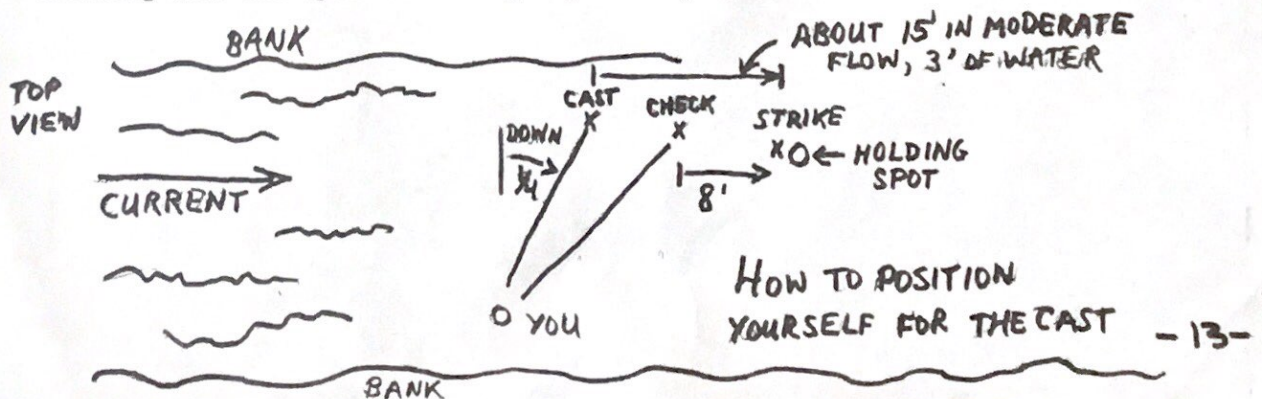 BANK
ABOUT 15' IN MODERATE
FLOW, 3' OF WATER
TOP
VIEW
CAST
CHECK
STRIKE
DOWN
1/4
X
X
X O ← HOLDING
SPOT
CURRENT
8'
HOW TO POSITION
YOURSELF FOR THE CAST
O YOU
- 13 -
BANK